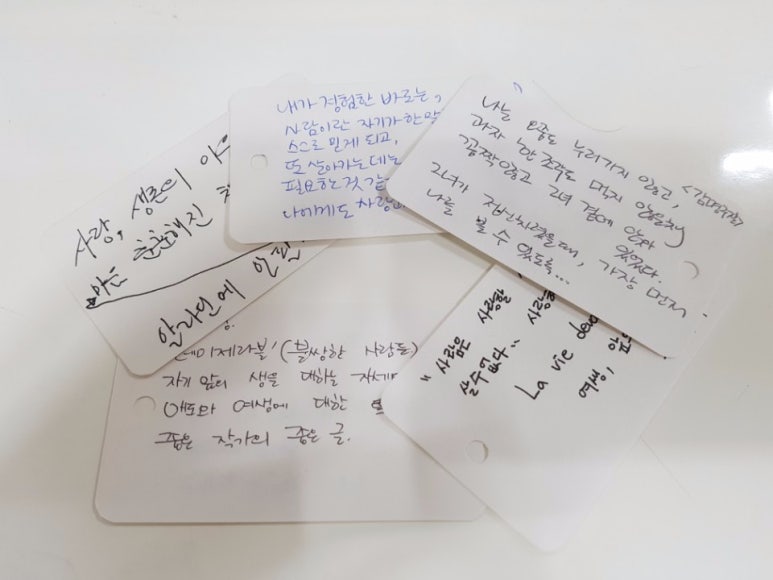 내가 경험한 바로는,
사람이란 자기가 한 말
스스로 믿게 되고,
또 살아가는데는
필요한 것 같
나에게도 사랑
나는 오줌도 누러가지 않고,
과자 한 조각도 먹지 않은채
꼼짝않고 그녀 곁에 앉아 있었다.
그녀가 정신차렸을때, 가장 먼저
나를 볼 수 있도록...
사랑, 생존의
마른
안라단에
레미제라블' (불쌍한 사람들)
자기 앞의 생을 대하는 자세
애도와 여생에 대한
좋은 작가의 좋은 글.
"사람은 사랑할
살 수 없다"
La vie
여생,